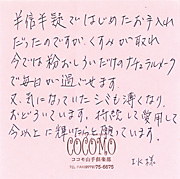 半信半疑ではじめたお手入れ
だったのですが、くすみが取れ
今では粉おしろいだけのナチュラルメーク
で毎日が過ごせます。
又、気になっていたシミも薄くなり、
おどろいています。持続して愛用して
今以上に輝いたらと願っています。
COCOMO
ココモ山手倶楽部
75-6675
I.K 様